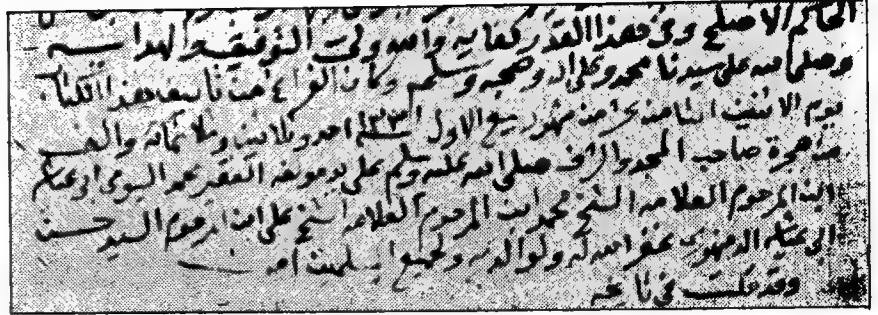 الحاكم الأصلح وفى هذا القدر كفاية والله ولى التوفيق والهداية
وصلى الله على سيدنا محمد وعلى آله وصحبه وسلم وكان الفراغ من تأليف هذا الكتاب
يوم الاثنين الثامن عشر من شهر ربيع الأول ١٣٣١ احد وثلاثين وثلاثمائة والف
من هجرة صاحب المجد والشرف صلى الله عليه وسلم على يد مؤلفه الفقير محمد البيومى أبو عياشه
ابن المرحوم العلامه الشيخ محمد ابن المرحوم العلامه الشيخ على ابن المرحوم السيد حسن
أبى عياشه الدمنهورى غفر الله له ولوالديه ولجميع المسلمين امين
وقد قلت فى تاريخه